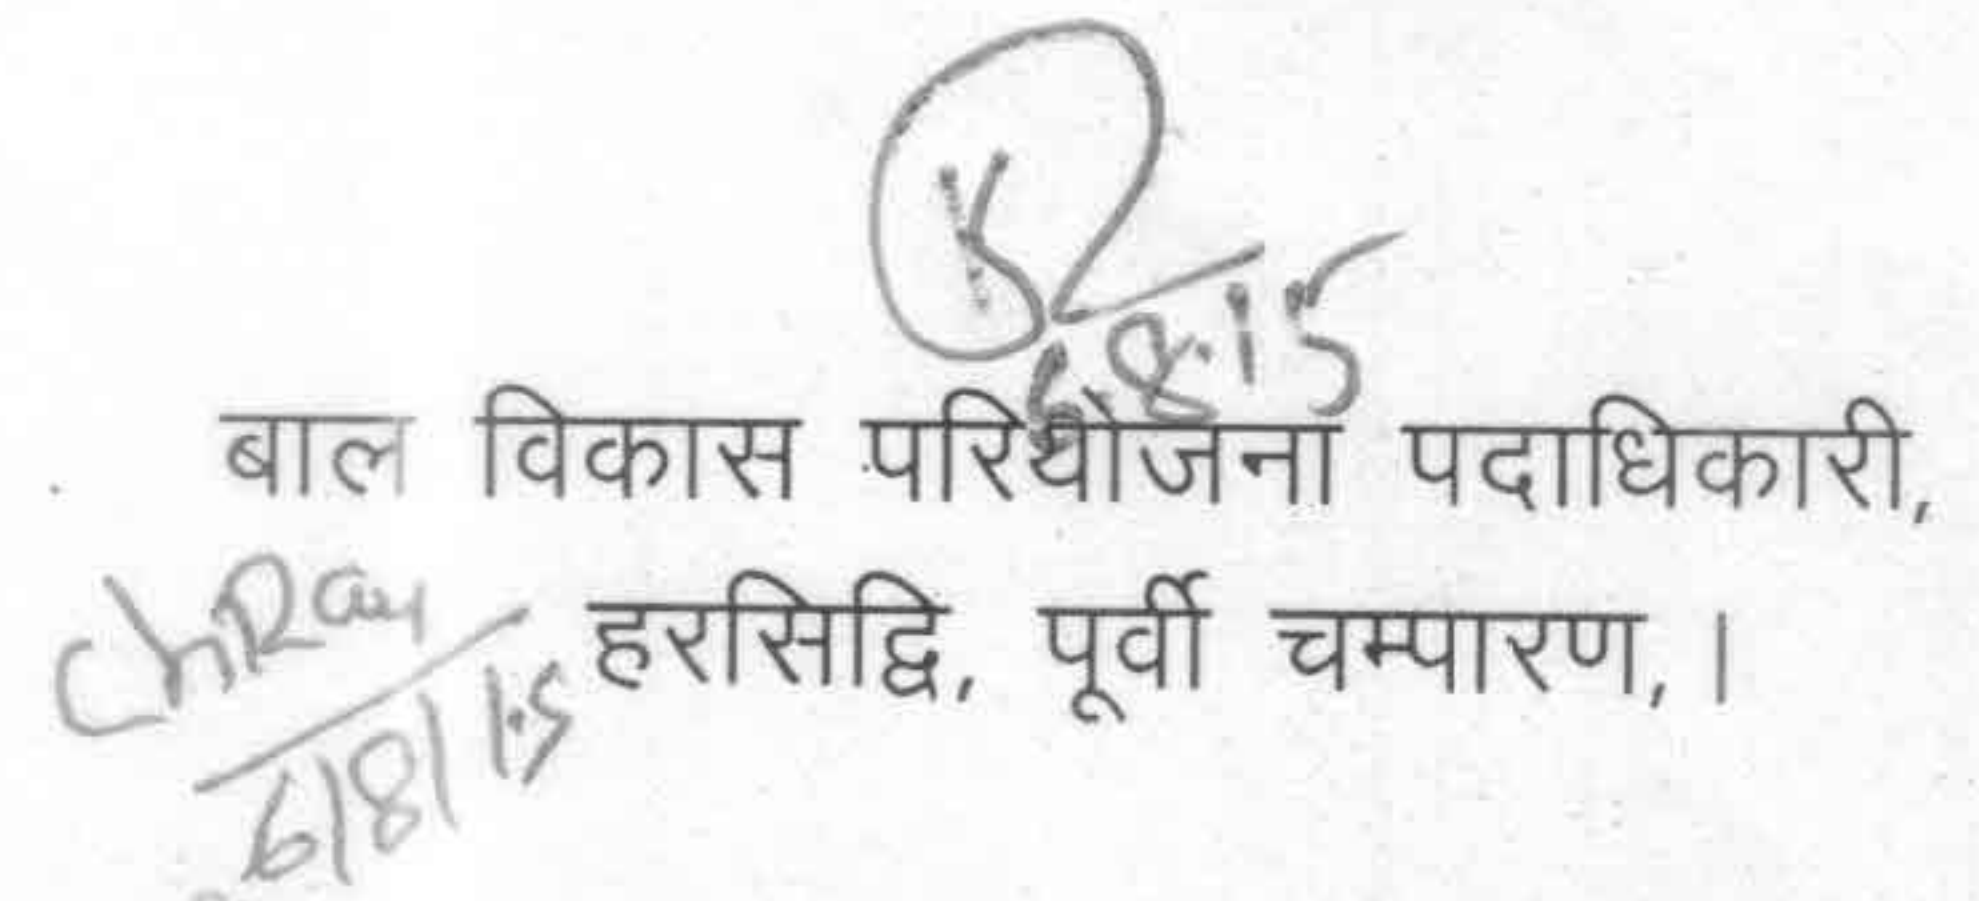 6.8.15
बाल विकास परियोजना पदाधिकारी,
हरसिद्वि, पूर्वी चम्पारण,।
ChRay
6/8/15